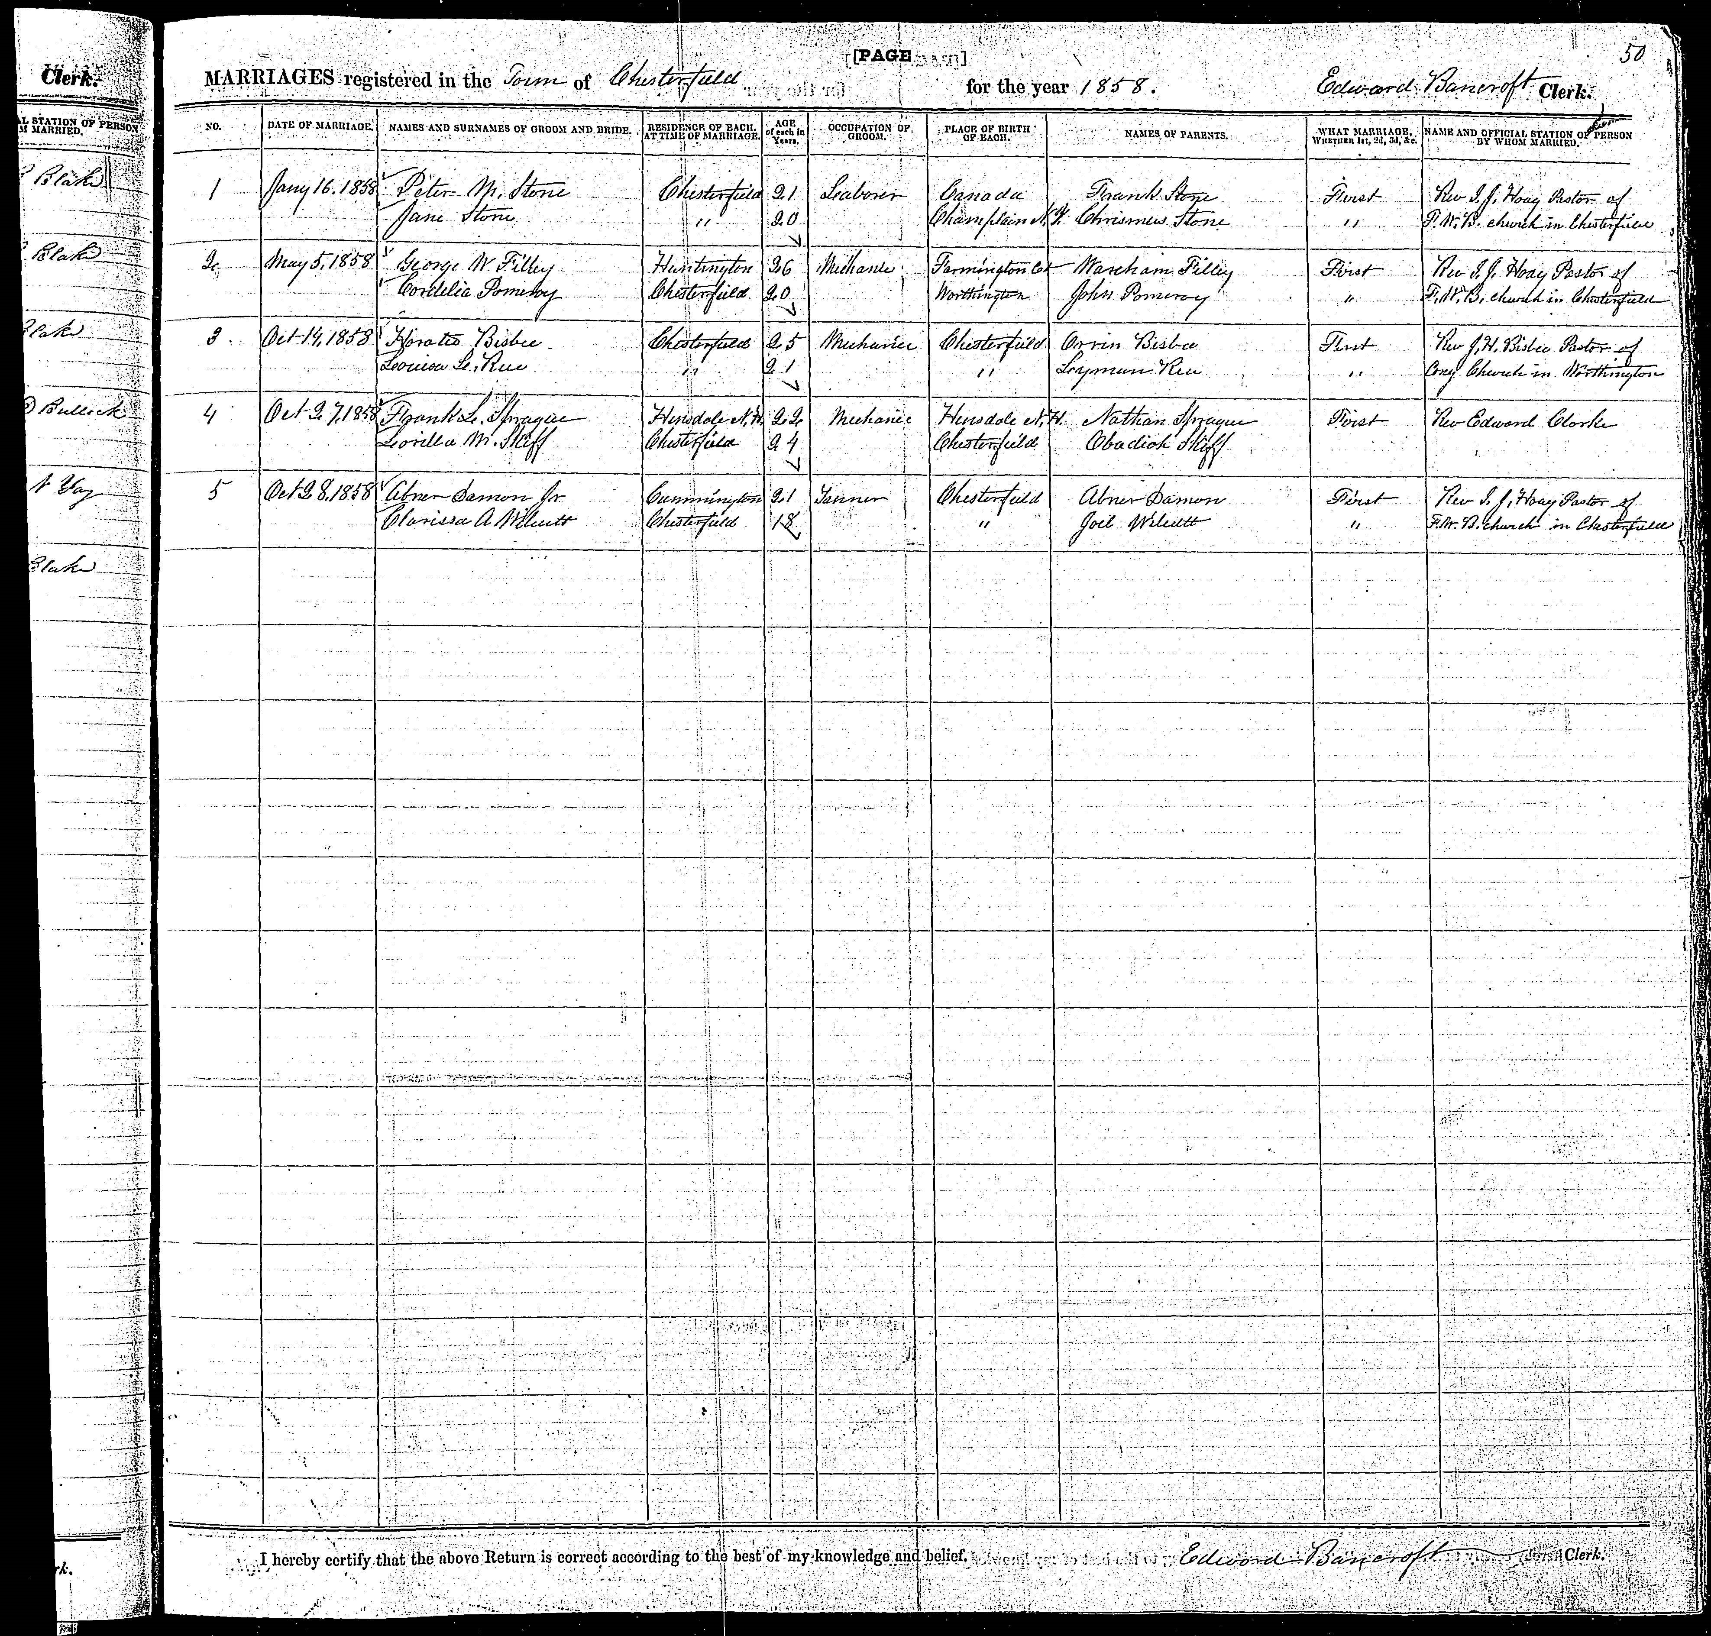 Clerk.
AL STATION OF PERSON
M MARRIED.
Blake
Blake
Blake
Bullock
Blake
rk.
[PAGE ]
50
MARRIAGES registered in the Town of Chesterfield for the year 1858. Edward Bancroft Clerk.
NO. DATE OF MARRIAGE. NAMES AND SURNAMES OF GROOM AND BRIDE. RESIDENCE OF EACH AT TIME OF MARRIAGE. AGE of each in Years. OCCUPATION OF GROOM. PLACE OF BIRTH OF EACH. NAMES OF PARENTS. WHAT MARRIAGE, WHETHER 1st, 2d, 3d, &c. NAME AND OFFICIAL STATION OF PERSON BY WHOM MARRIED.
1 Jany 16. 1858 Peter M. Stone Chesterfield 21 Laborer Canada Frank Stone First Rev I. J. Hoag Pastor of
Jane Stone " 20 Champlain N.Y. Stone " F. W. B. church in Chesterfield
2 May 5, 1858 George W Filley Huntington 26 Mechanic Farmington Ct Wareham Filley First Rev I. J. Hoag Pastor of
Cordelia Pomeroy Chesterfield 20 Worthington John Pomeroy " F. W. B. church in Chesterfield
3 Oct 14, 1858 Horatio Bisbee Chesterfield 25 Mechanic Chesterfield Orrin Bisbee First Rev J. H. Bisbee Pastor of
Louisa L. Rice " 21 " Layman Rice " Cong Church in Worthington
4 Oct 27, 1858 Frank L. Sprague Hinsdale N. H. 22 Mechanic Hinsdale N. H. Nathan Sprague First Rev Edward Clarke
Lorilla M. Skiff Chesterfield 24 Chesterfield Obadiah Skiff
5 Oct 28. 1858 Abner Damon Jr Cummington 21 Tanner Chesterfield Abner Damon First Rev I. J. Hoag Pastor of
Clarissa A Wilcutt Chesterfield 18 " Joel Wilcutt " F. W. B. church in Chesterfield
I hereby certify that the above Return is correct according to the best of my knowledge and belief. Edward Bancroft Clerk.